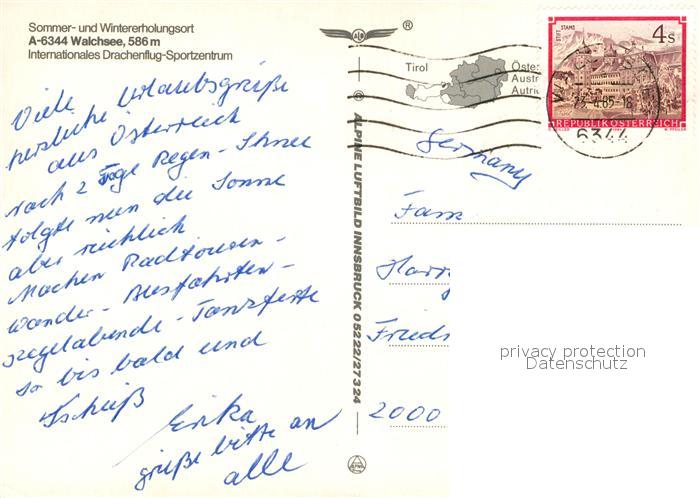 Sommer- und Wintererholungsort
A-6344 Walchsee, 586 m
Internationales Drachenflug-Sportzentrum
Viele Urlaubsgrüße
herzliche
aus Österreich
nach 2 Tage Regen - Schnee
folgte nun die Sonne
aber reichlich
Machen Radtouren -
wander - Busfahrten -
Kegelabende - Tanzfeste
so bis bald und
Tschüß
Erika
grüße bitte an
alle
®
® ALPINE LUFTBILD INNSBRUCK 05222/27324
Tirol
Öste
Austr
Autri
STIFT STAMS
4s
REPUBLIK ÖSTERREICH
23.-4.85-18
6344
Germany
Fam
Harr
Friedr
2000
privacy protection
Datenschutz